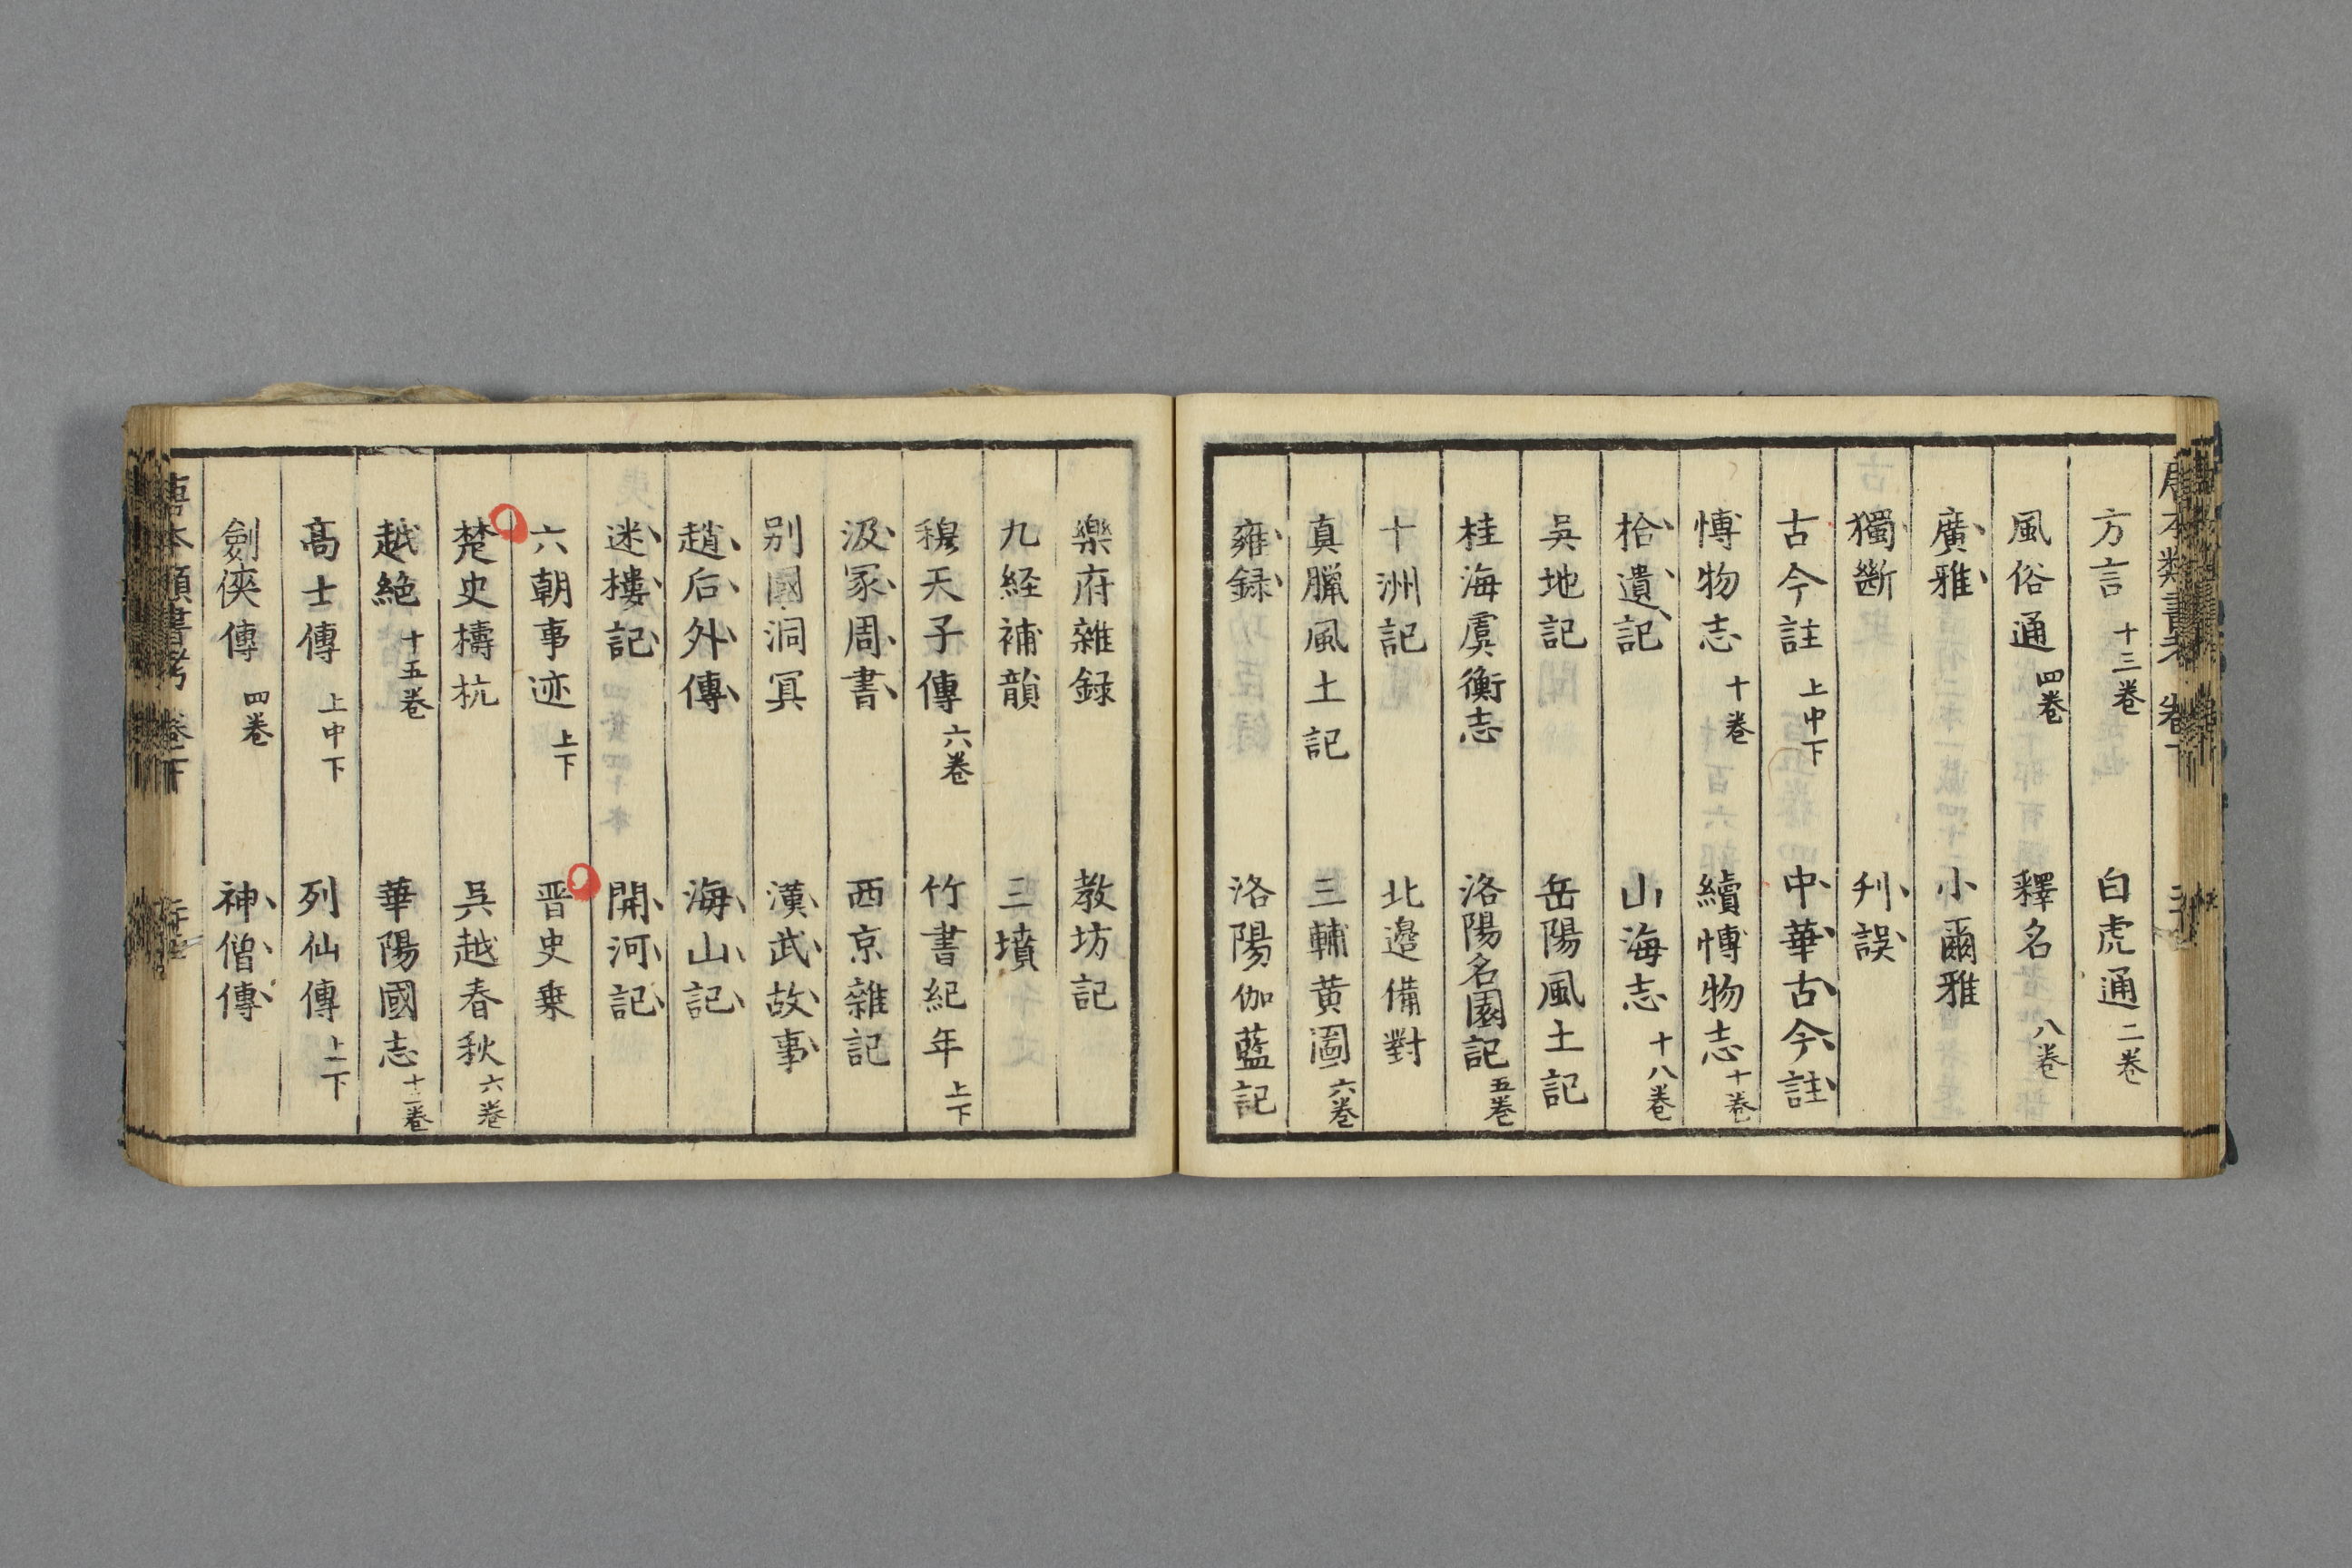 方言 十三巻 白虎通 二巻
風俗通 四巻 釋名 八巻
廣雅 小爾雅
獨斷 刋誤
古今註 上中下 中華古今註
愽物志 十巻 續愽物志 十巻
拾遺記 山海志 十八巻
吳地記 岳陽風土記
桂海虞衡志 洛陽名園記 五巻
十洲記 北邊備對
真臘風土記 三輔黄圖 六巻
雍録 洛陽伽藍記
樂府雜録 教坊記
九経補韻 三墳
穆天子傳 六巻 竹書紀年 上下
汲冢周書 西京雜記
別國洞冥 漢武故事
趙后外傳 海山記
迷樓記 開河記
六朝事迹 上下 晋史乗
楚史檮杌 吳越春秋 六巻
越絶 十五巻 華陽國志 十二巻
髙士傳 上中下 列仙傳 上下
劍俠傳 四巻 神僧傳
唐本類書考 巻下